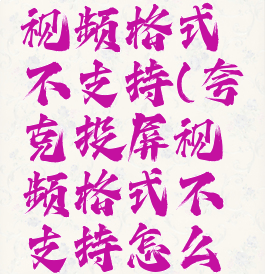 视频格式
不支持(夸
克投屏视
频格式不
支持怎么